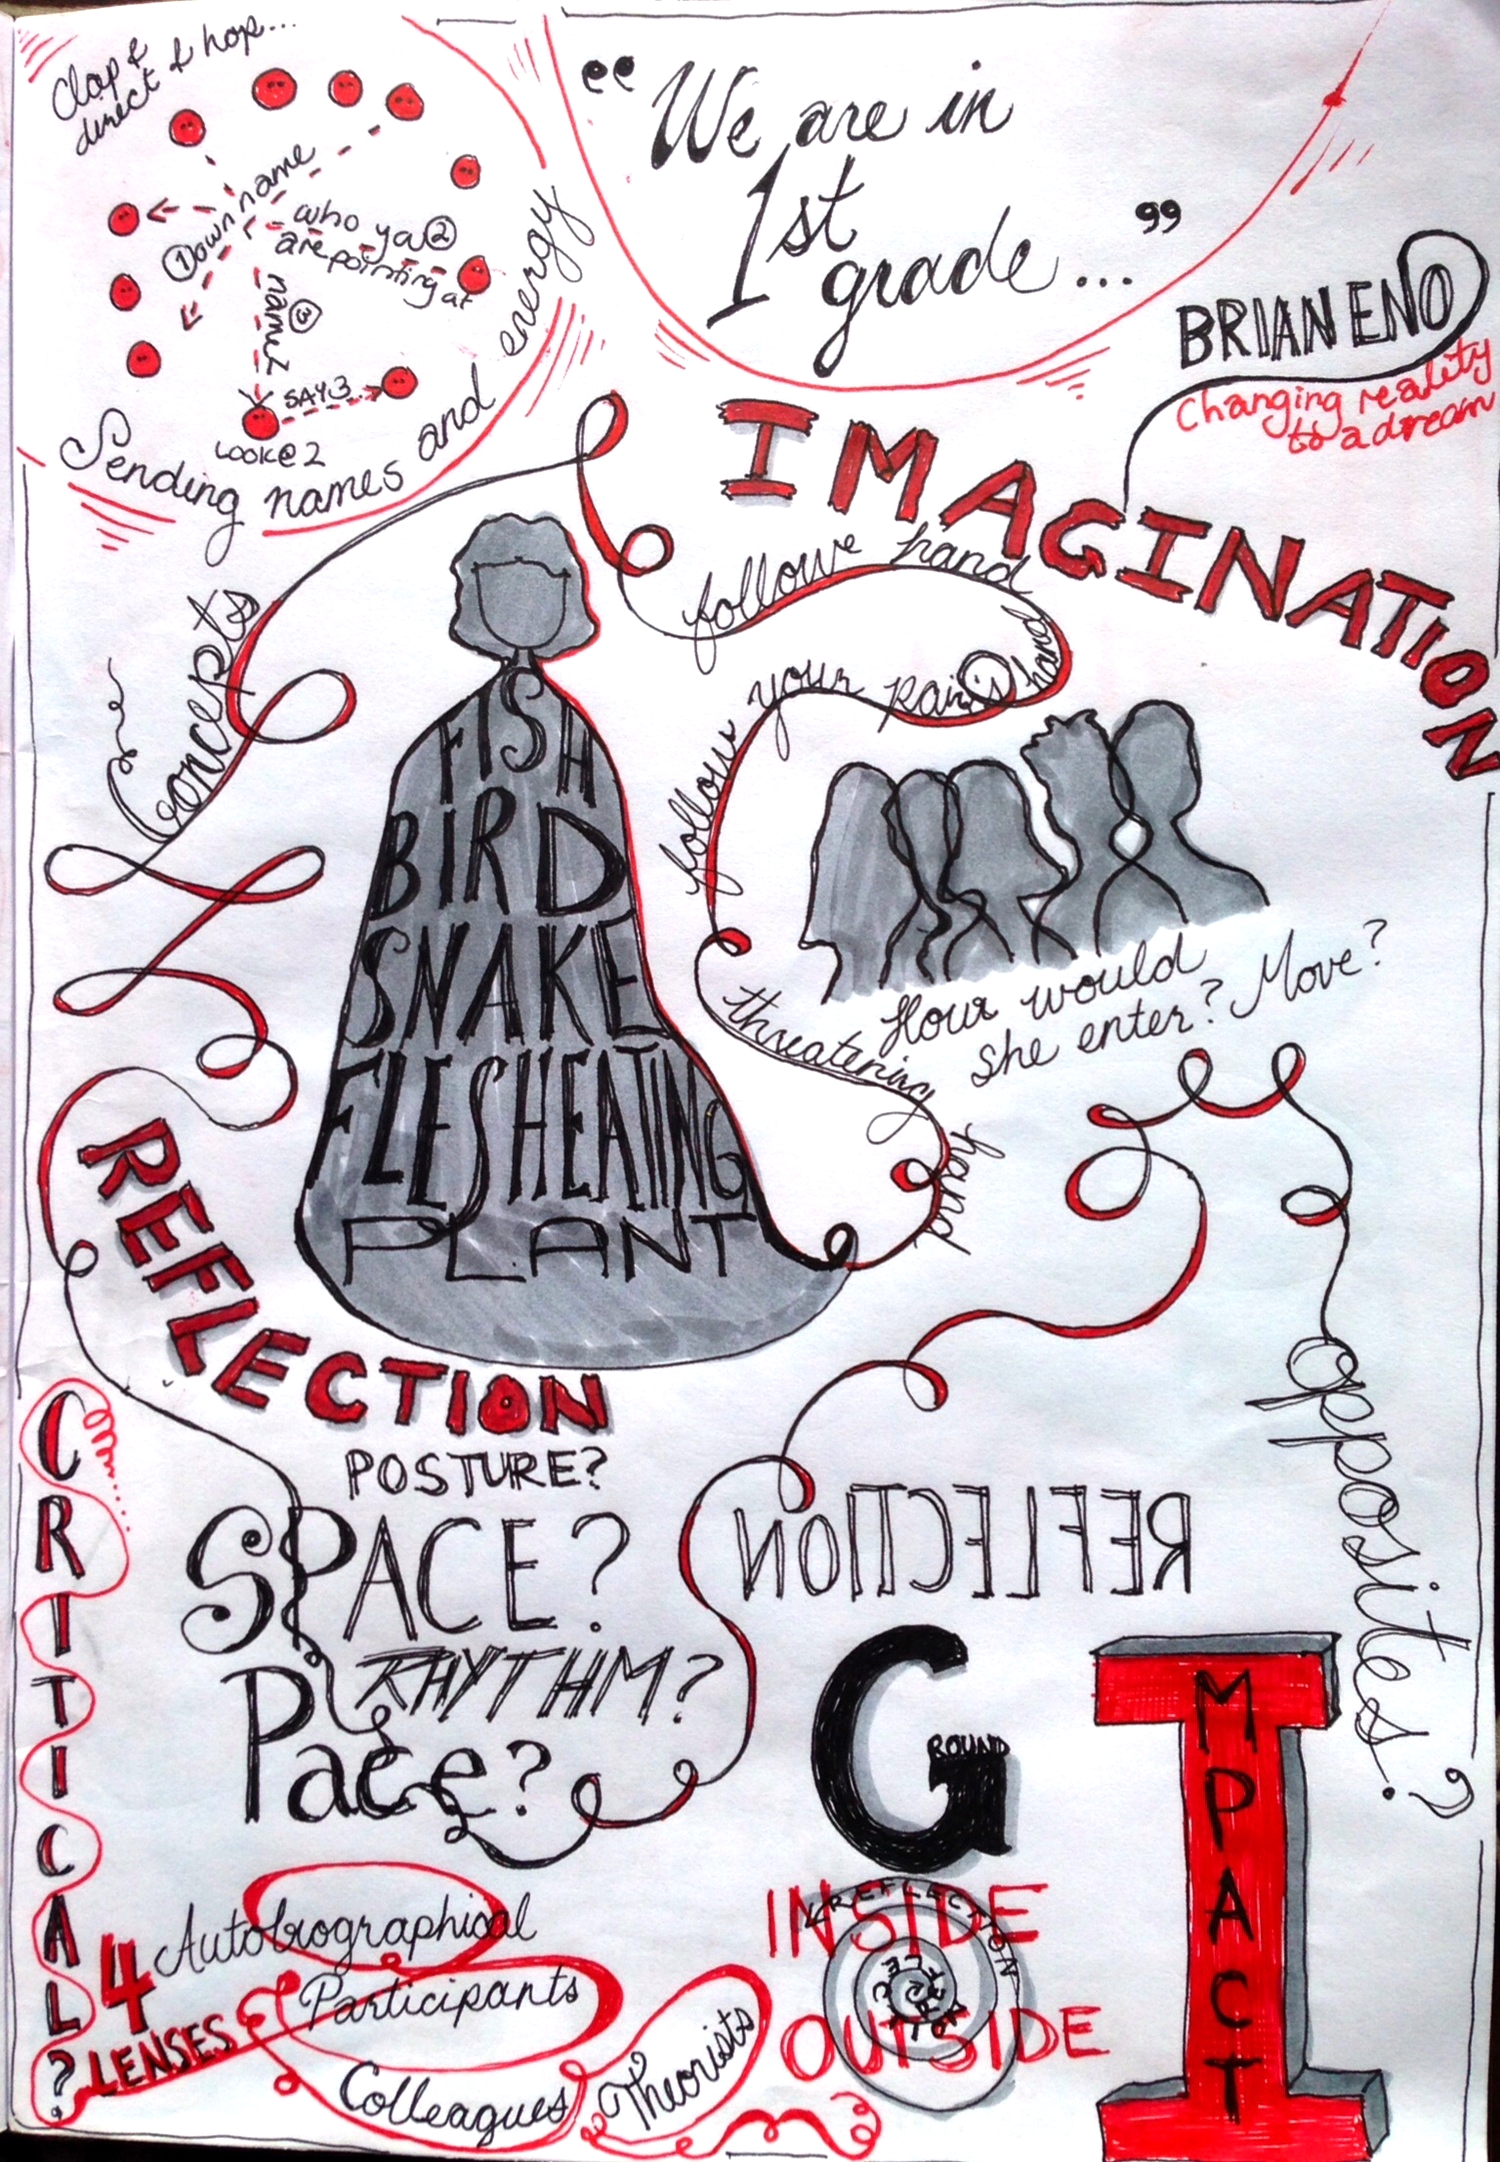 Clap &
direct & hop...
① own name
who you ②
are pointing at
③
name 2
SAY 3
LOOK @ 2
Sending names and energy
"We are in
1st
grade..."
BRIAN ENO
Changing reality
to a dream
IMAGINATION
Concepts
follow hand
hand
follow your pair's
threatening
hand
FISH
BIRD
SNAKE
FLESH EATING
PLANT
How would
she enter? Move?
REFLECTION
POSTURE?
SPACE?
RHYTHM?
Pace?
REFLECTION
opposites?
CRITICAL?
4
LENSES
Autobiographical
Participants
Colleagues
Theorists
GROUND
INSIDE
REFLECTION
REFLECTION
OUTSIDE
IMPACT